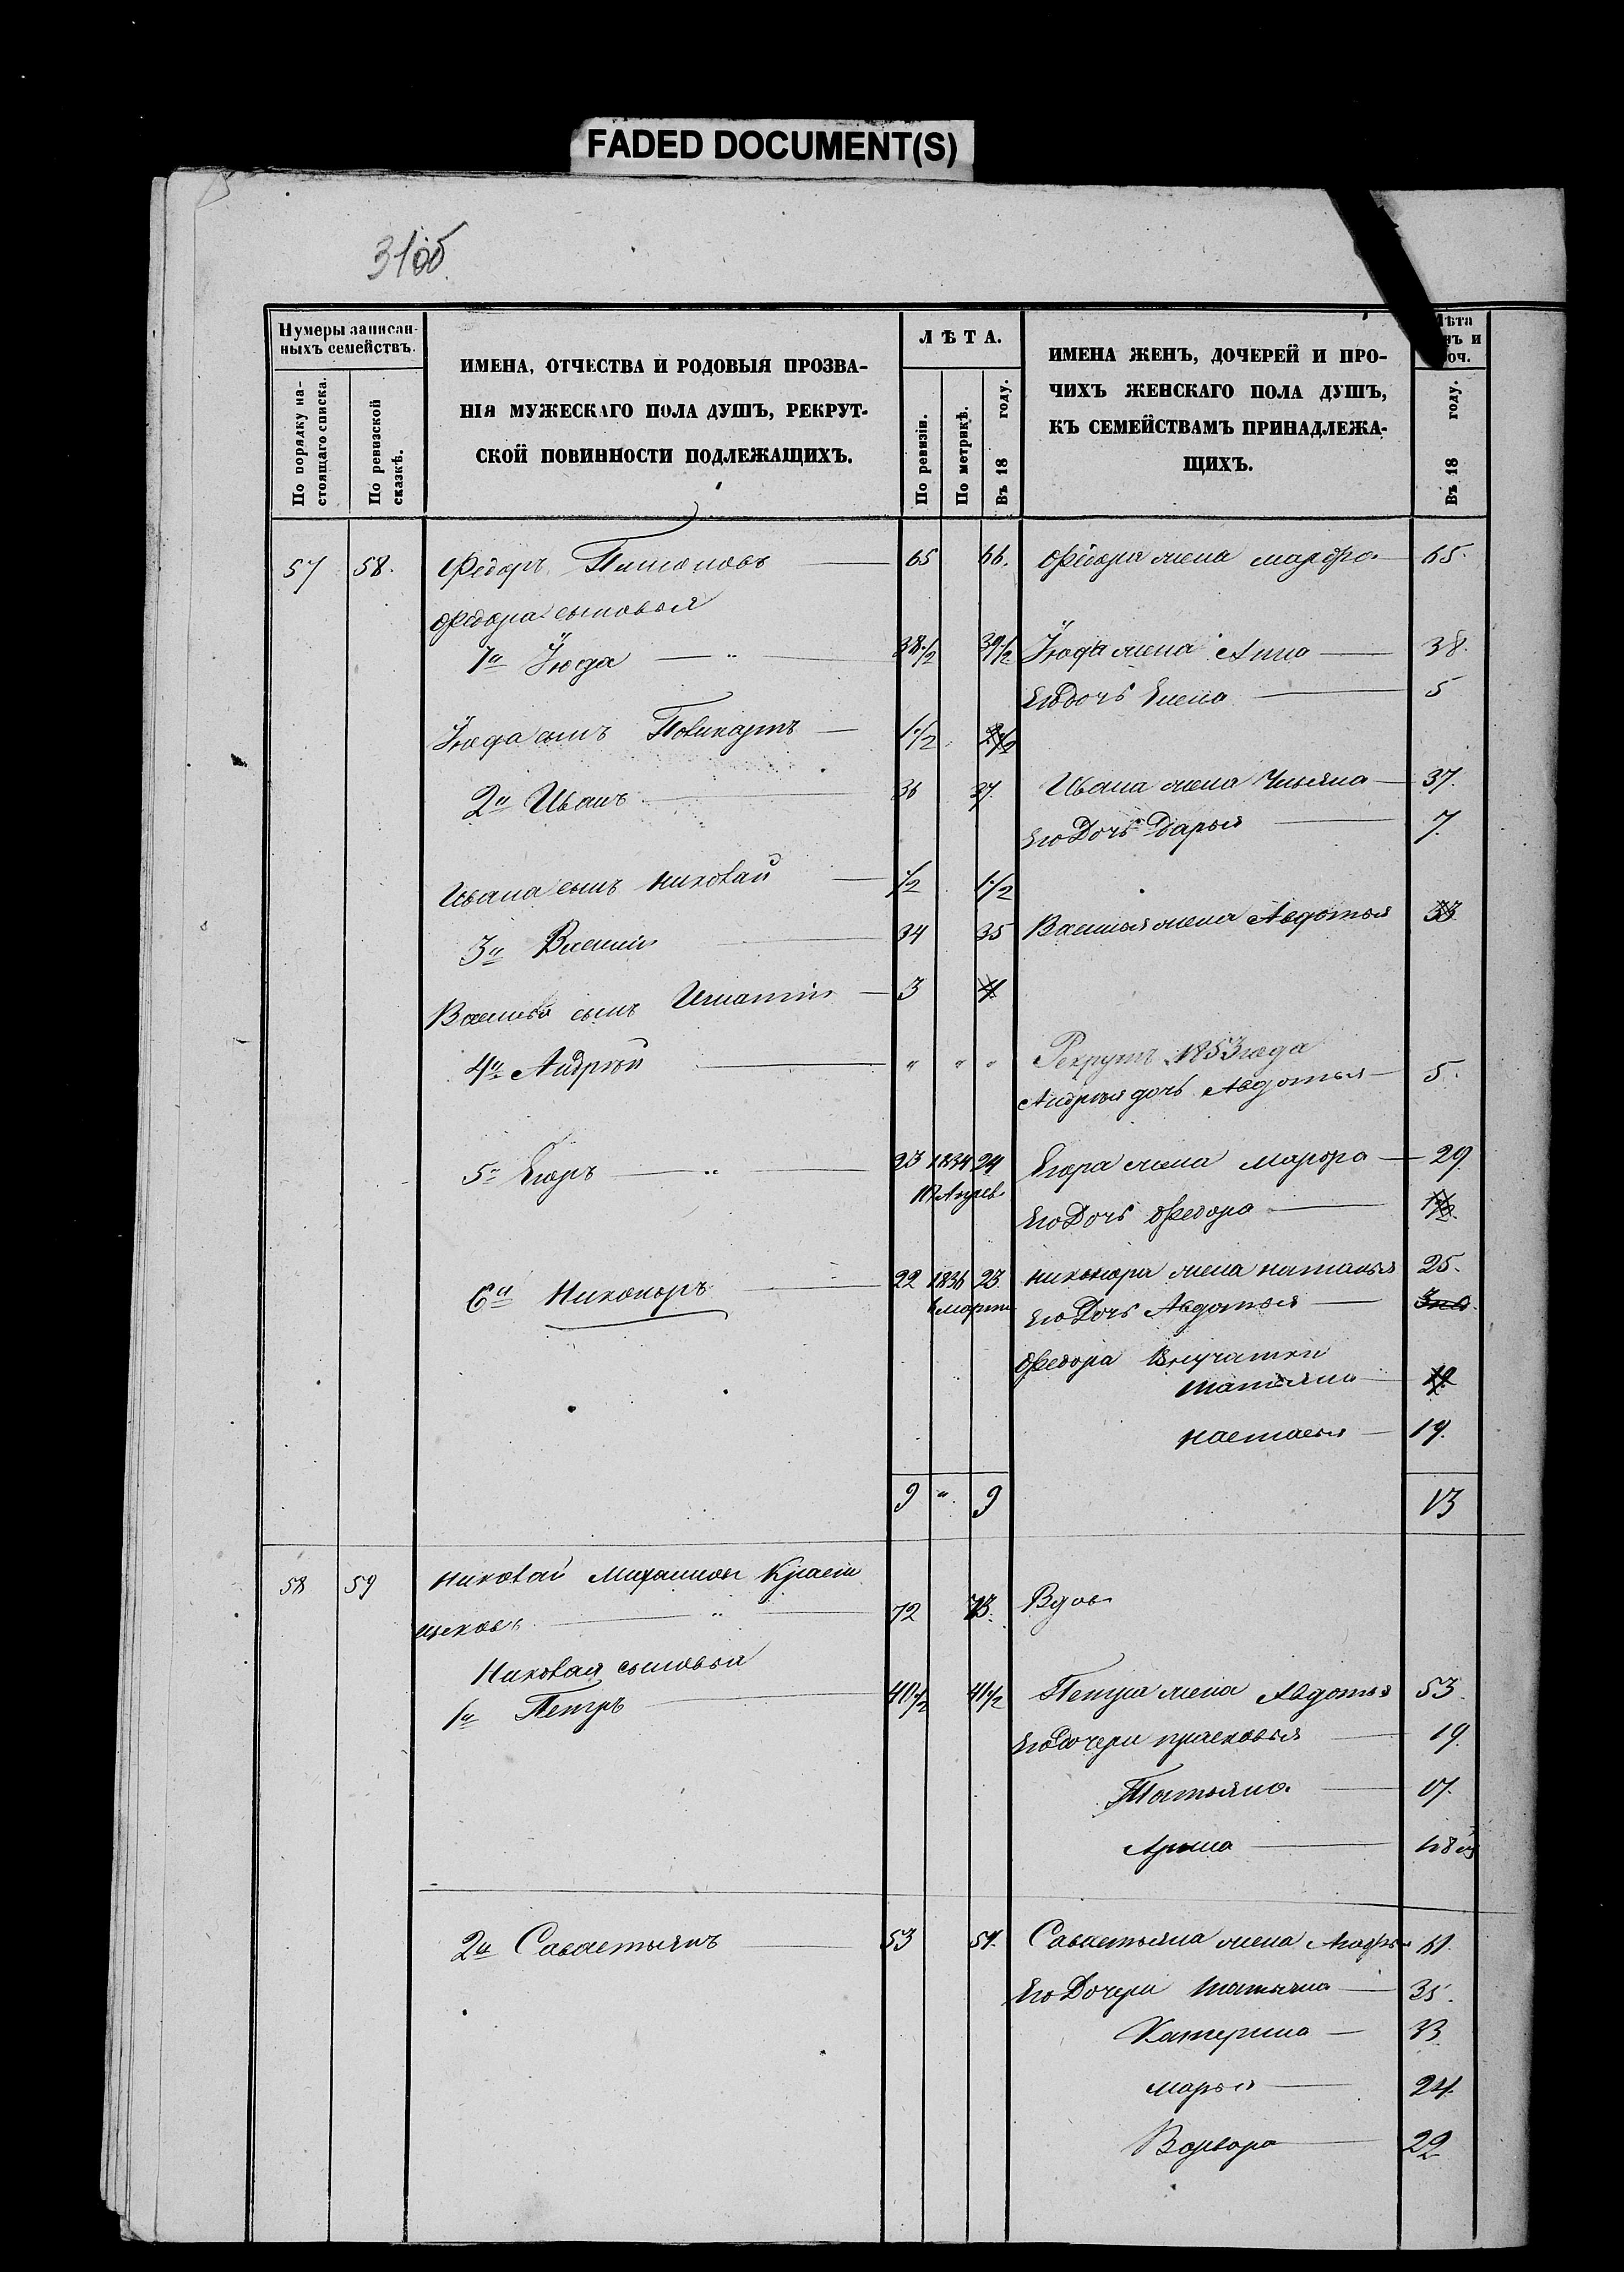 FADED DOCUMENT(S)
31об.
Нумеры записан-
ныхъ семействъ.
По порядку на-
стоящаго списка.
По ревизской
сказкѣ.
ИМЕНА, ОТЧЕСТВА И РОДОВЫЯ ПРОЗВА-
НІЯ МУЖЕСКАГО ПОЛА ДУШЪ, РЕКРУТ-
СКОЙ ПОВИННОСТИ ПОДЛЕЖАЩИХЪ.
ЛѢТА.
По ревизіи.
По метрикѣ.
Въ 18 году.
ИМЕНА ЖЕНЪ, ДОЧЕРЕЙ И ПРО-
ЧИХЪ ЖЕНСКАГО ПОЛА ДУШЪ,
КЪ СЕМЕЙСТВАМЪ ПРИНАДЛЕЖА-
ЩИХЪ.
Лѣта
нъ и
оч.
Въ 18 году.
57 58. Федоръ 65 66. Федора жена марфа 65.
Федора сыновья
1й Июда 38 1/2 39 1/2 Июды жена Анна 38.
Его дочь Елена 5
Июда сынъ Поликарпъ 1 1/2
2й Иванъ 36 37. Ивана жена Ульяна 37.
Его Дочь Дарья 7.
Ивана сынъ николай 1/2 1 1/2
3й Василий 34 35 Василья жена Авдотья 33
Василья сынъ Игнатий 3 4
4й Андрѣй " " " Рекрутъ 1853 года
Андрѣя дочь Авдотья 5.
5й Егоръ 23 1834 24 Егора жена марфа 29
Его Дочь Федора
6й Никоноръ 22 1836 23 никонора жена наталья 25.
марта Его Дочь Авдотья
Федора Внучатки
татьяна
настасья 19.
9 " 9 13
58 59 николай
72 73. Вдов
Николая сыновья
1й Петръ 40 1/2 41 1/2 Петра жена Авдотья 53.
Его дочери прасковья 19.
Татьяна 17.
Арина
2й Савастьянъ 53 54. Савастьяна жена 61.
Его Дочери татьяна 35.
Катерина 33.
марья 24.
Варвара 22